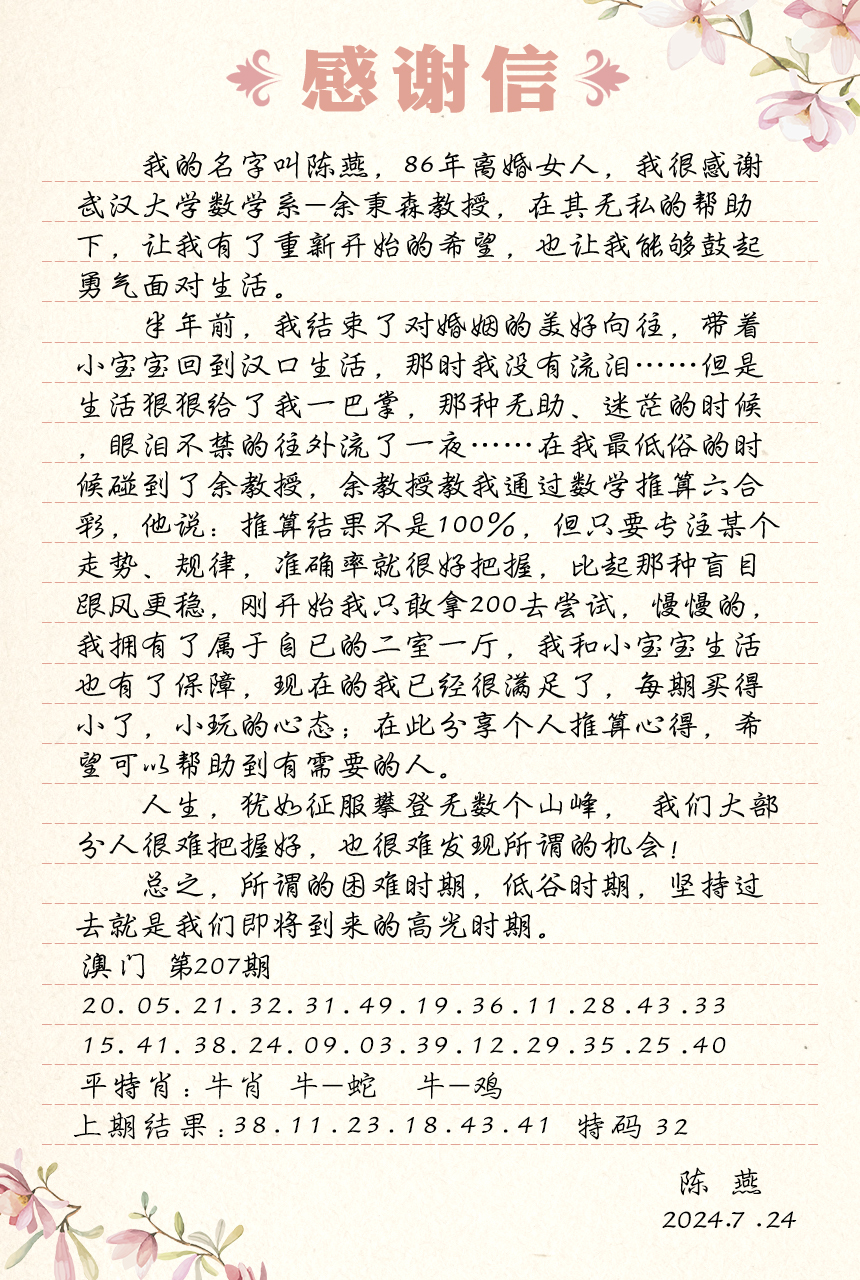 感谢信
我的名字叫陈燕，86年离婚女人，我很感谢
武汉大学数学系—余秉森教授，在其无私的帮助
下，让我有了重新开始的希望，也让我能够鼓起
勇气面对生活。
半年前，我结束了对婚姻的美好向往，带着
小宝宝回到汉口生活，那时我没有流泪……但是
生活狠狠给了我一巴掌，那种无助、迷茫的时候
，眼泪不禁的往外流了一夜……在我最低俗的时
候碰到了余教授，余教授教我通过数学推算六合
彩，他说：推算结果不是100%，但只要专注某个
走势、规律，准确率就很好把握，比起那种盲目
跟风更稳，刚开始我只敢拿200去尝试，慢慢的，
我拥有了属于自已的二室一厅，我和小宝宝生活
也有了保障，现在的我已经很满足了，每期买得
小了，小玩的心态；在此分享个人推算心得，希
望可以帮助到有需要的人。
人生，犹如征服攀登无数个山峰， 我们大部
分人很难把握好，也很难发现所谓的机会！
总之，所谓的困难时期，低谷时期，坚持过
去就是我们即将到来的高光时期。
澳门 第207期
20.05.21.32.31.49.19.36.11.28.43.33
15.41.38.24.09.03.39.12.29.35.25.40
平特肖：牛肖 牛—蛇 牛—鸡
上期结果：38.11.23.18.43.41 特码 32
陈 燕
2024.7.24